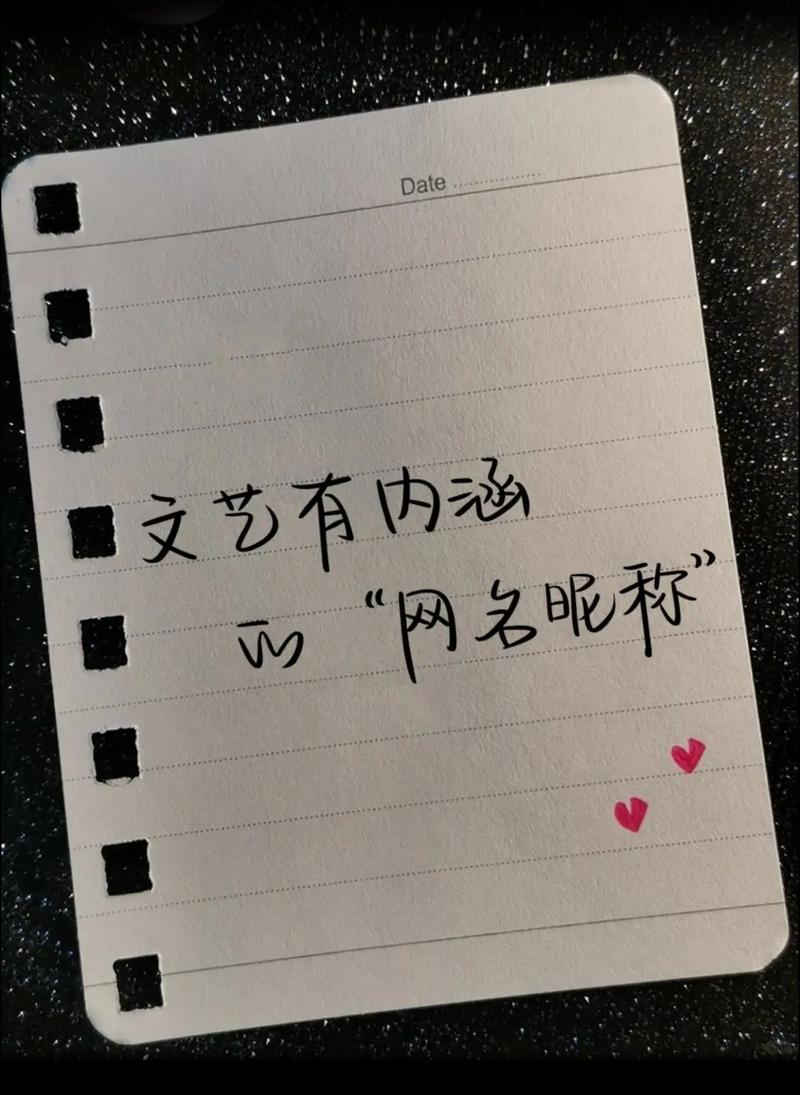 Date
文艺有内涵
的 “网名昵称”